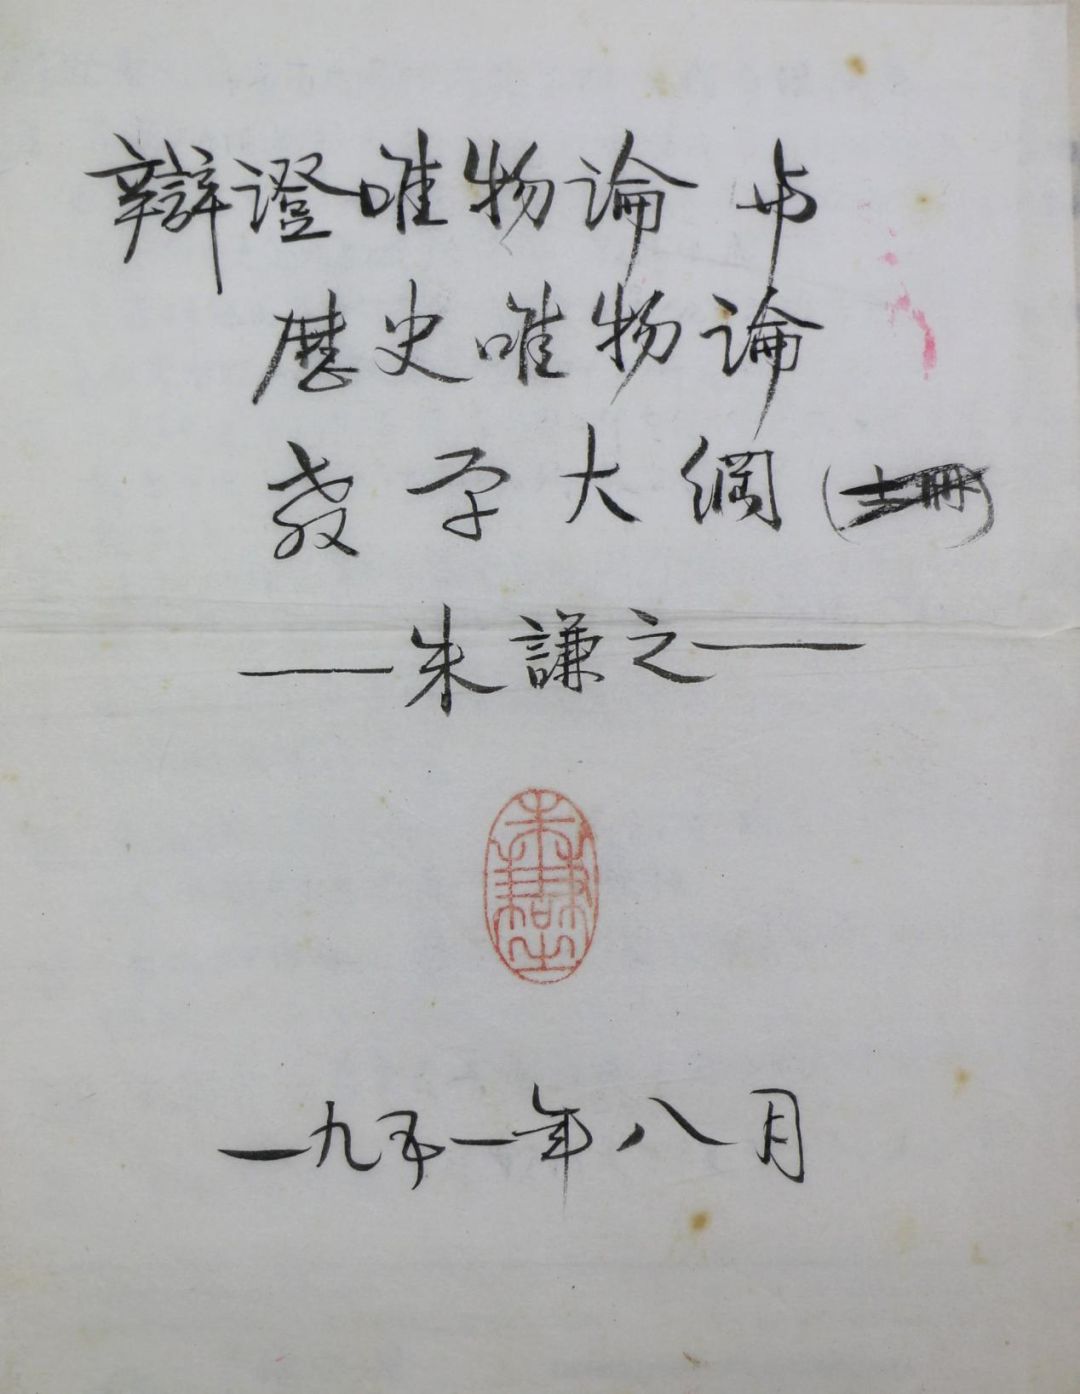 辯證唯物論与
歷史唯物論
教学大綱(上冊)
—朱謙之—
朱謙之
一九五一年八月